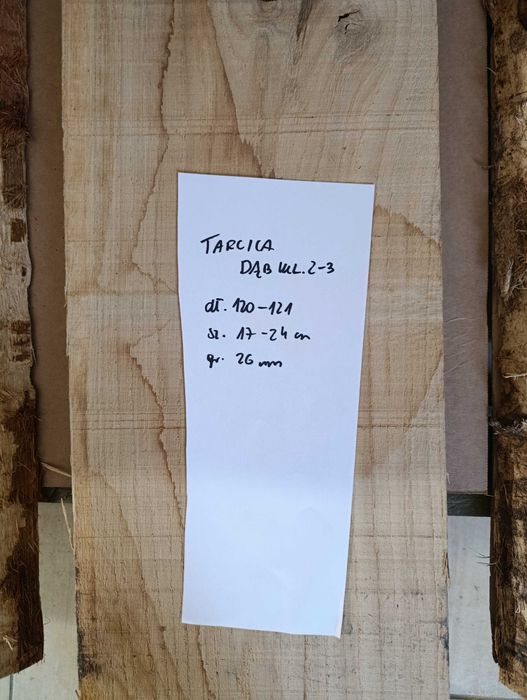 TARCICA
DĄB KL. 2-3
dł. 120-121
sz. 17-24 cm
gr. 26 mm